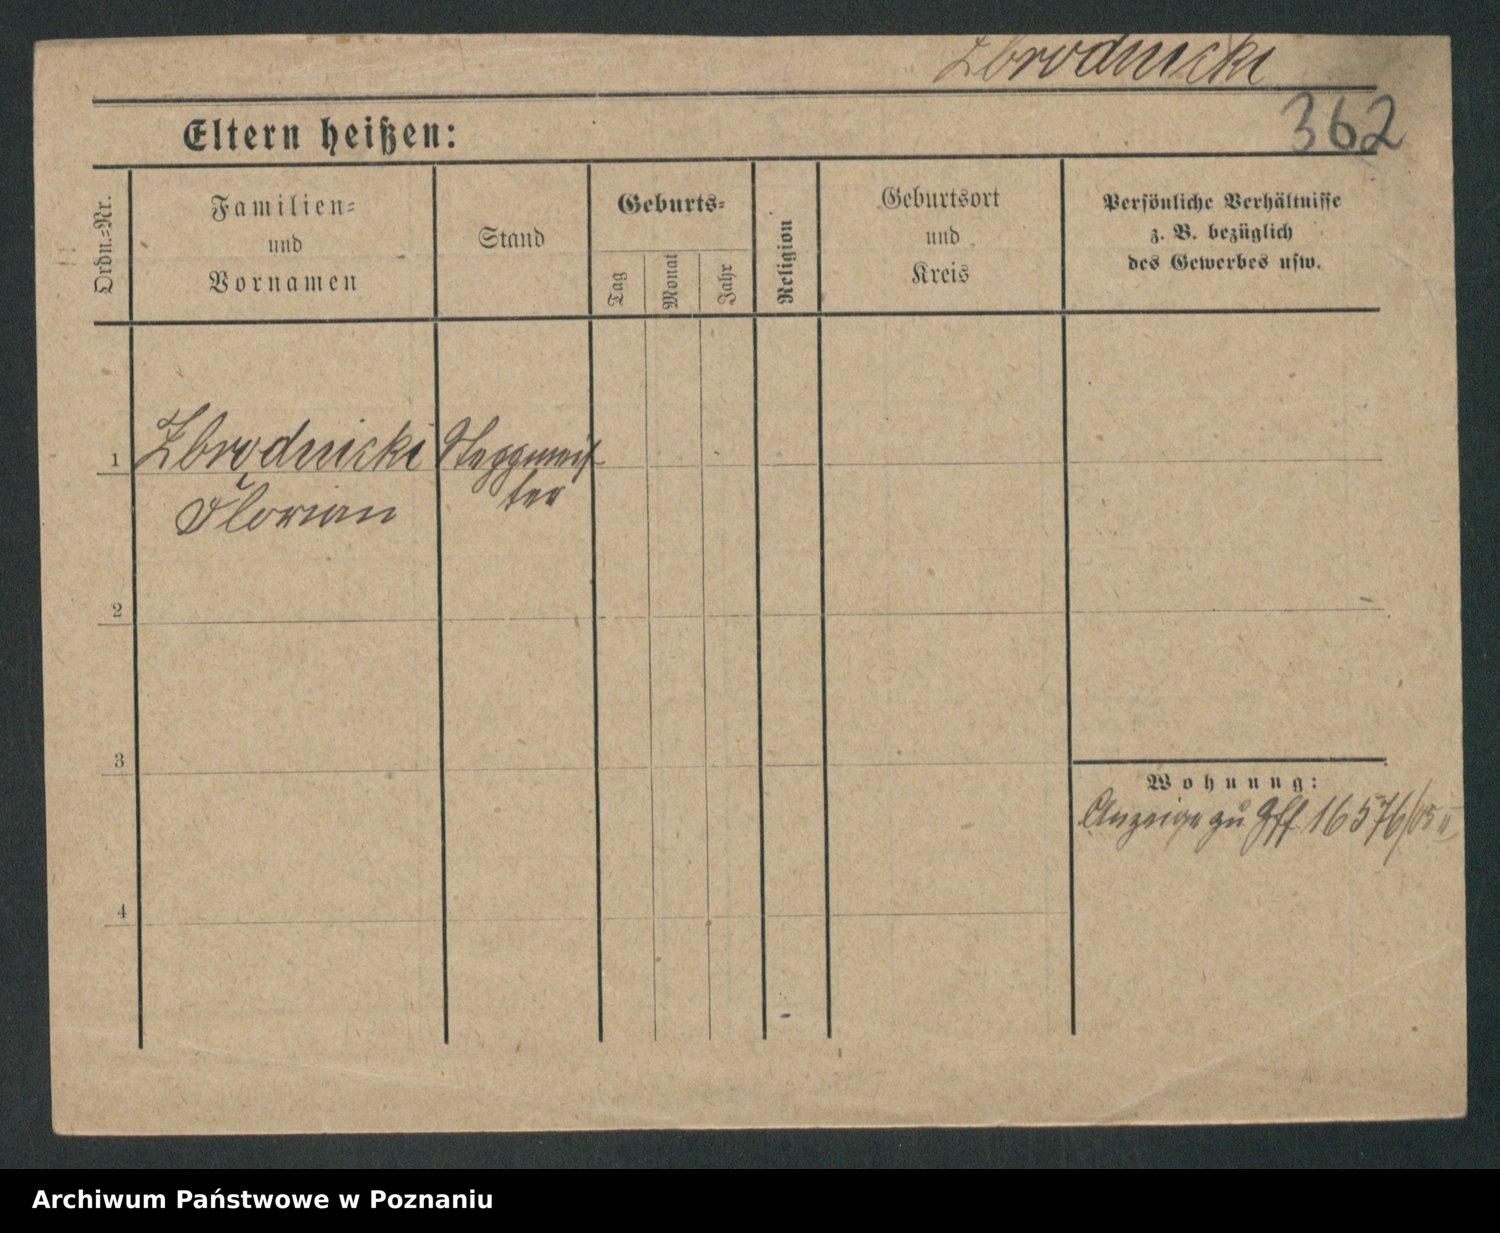 Zbrodnicki
362
Eltern heißen:
Ordn.-Nr.
Familien-
und
Vornamen
Stand
Geburts-
Tag
Monat
Jahr
Religion
Geburtsort
und
Kreis
Persönliche Verhältnisse
z. B. bezüglich
des Gewerbes usw.
1
Zbrodnicki
Florian
Steppmeis-
ter
2
3
4
Wohnung:
Anzeige zu 16576/05 II
Archiwum Państwowe w Poznaniu